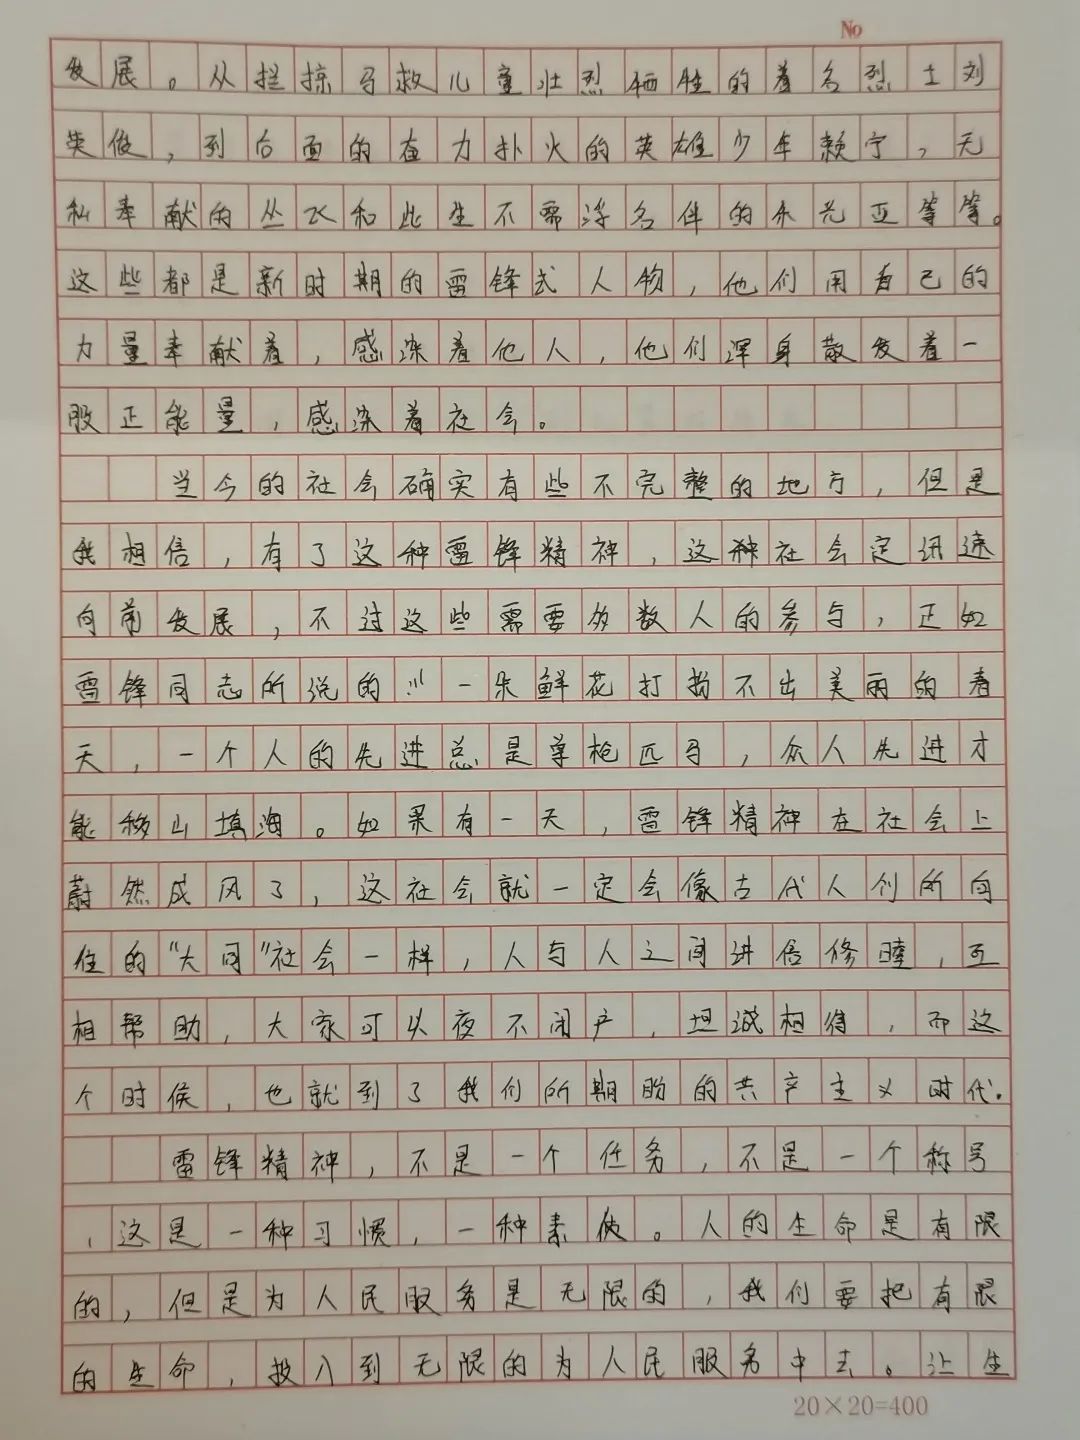 No
发展。从拦惊马救儿童壮烈牺牲的著名烈士刘
英俊，到后面的奋力扑火的英雄少年赖宁，无
私奉献的丛飞和此生不需浮名伴的朱光亚等等。
这些都是新时期的雷锋式人物，他们用自己的
力量奉献着，感染着他人，他们浑身散发着一
股正能量，感染着社会。
当今的社会确实有些不完整的地方，但是
我相信，有了这种雷锋精神，这种社会定讯速
向前发展，不过这些需要多数人的参与，正如
雷锋同志所说的：“一朵鲜花打扮不出美丽的春
天，一个人的先进总是单枪匹马，众人先进才
能移山填海。如果有一天，雷锋精神在社会上
蔚然成风了，这社会就一定会像古代人们所向
往的“大同”社会一样，人与人之间讲信修睦，互
相帮助，大家可以夜不闭户，坦诚相待，而这
个时候，也就到了我们所期盼的共产主义时代.
雷锋精神，不是一个任务，不是一个称号
，这是一种习惯，一种素使。人的生命是有限
的，但是为人民服务是无限的，我们要把有限
的生命，投入到无限的为人民服务中去。让生
20×20=400